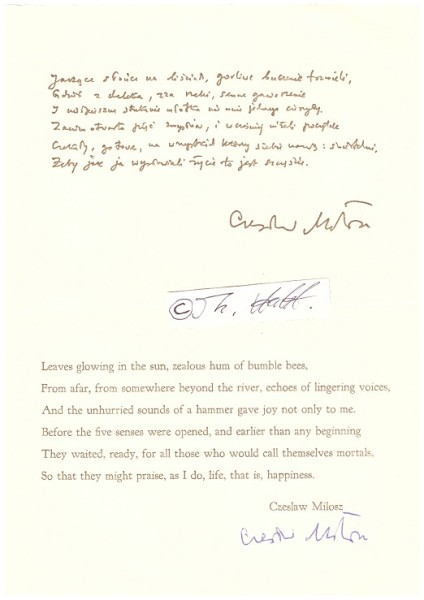 Jarzące słońce na liściach, gorliwe buczenie trzmieli,
Gdzieś z daleka, zza rzeki, senne gaworzenie
I niespieszne stukanie młotka nie mnie jednego cieszyły.
Zanim otwarto pięć zmysłów, i wcześniej niż początek
Czekały, gotowe, na wszystkich którzy siebie nazwą: śmiertelni,
Żeby jak ja wysławiali życie to jest szczęście.
Czesław Miłosz
© Th.
Leaves glowing in the sun, zealous hum of bumble bees,
From afar, from somewhere beyond the river, echoes of lingering voices,
And the unhurried sounds of a hammer gave joy not only to me.
Before the five senses were opened, and earlier than any beginning
They waited, ready, for all those who would call themselves mortals,
So that they might praise, as I do, life, that is, happiness.
Czeslaw Milosz
Czesław Miłosz